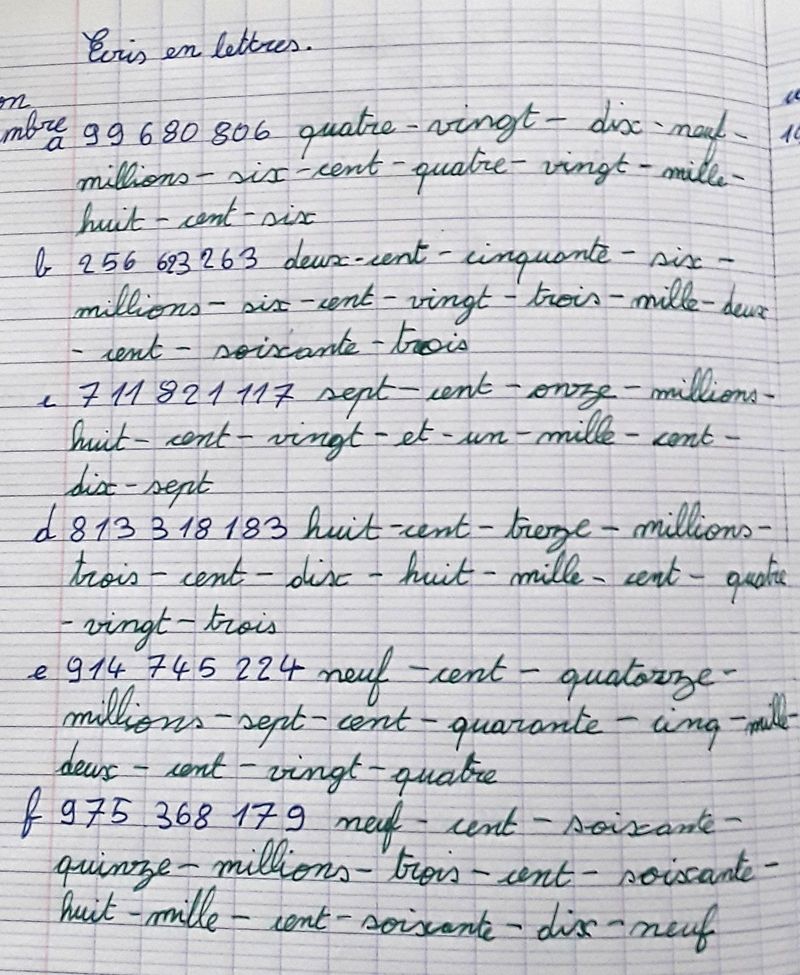 Ecris en lettres.
on
mbre
a 99 680 806 quatre-vingt-dix-neuf-
millions-six-cent-quatre-vingt-mille-
huit-cent-six
b 256 623 263 deux-cent-cinquante-six-
millions-six-cent-vingt-trois-mille-deux
-cent-soixante-trois
c 711 821 117 sept-cent-onze-millions-
huit-cent-vingt-et-un-mille-cent-
dix-sept
d 813 318 183 huit-cent-treize-millions-
trois-cent-dix-huit-mille-cent-quatre
-vingt-trois
e 914 745 224 neuf-cent-quatorze-
millions-sept-cent-quarante-cinq-mille-
deux-cent-vingt-quatre
f 975 368 179 neuf-cent-soixante-
quinze-millions-trois-cent-soixante-
huit-mille-cent-soixante-dix-neuf